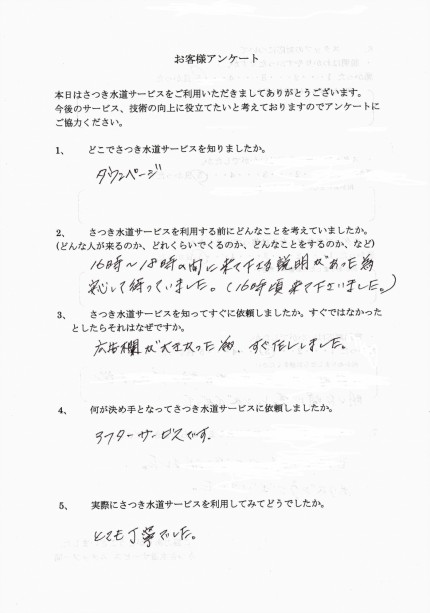 お客様アンケート
本日はさつき水道サービスをご利用いただきましてありがとうございます。
今後のサービス、技術の向上に役立てたいと考えておりますのでアンケートに
ご協力ください。
1、 どこでさつき水道サービスを知りましたか。
タウンページ
2、 さつき水道サービスを利用する前にどんなことを考えていましたか。
(どんな人が来るのか、どれくらいでくるのか、どんなことをするのか、など)
16時〜18時の間に来て下さる説明があった為
安心して待っていました。(16時頃来て下さいました。)
3、 さつき水道サービスを知ってすぐに依頼しましたか。すぐではなかった
としたらそれはなぜですか。
広告欄が大きかった為、すぐ
しました。
4、 何が決め手となってさつき水道サービスに依頼しましたか。
アフターサービスです。
5、 実際にさつき水道サービスを利用してみてどうでしたか。
とても丁寧でした。